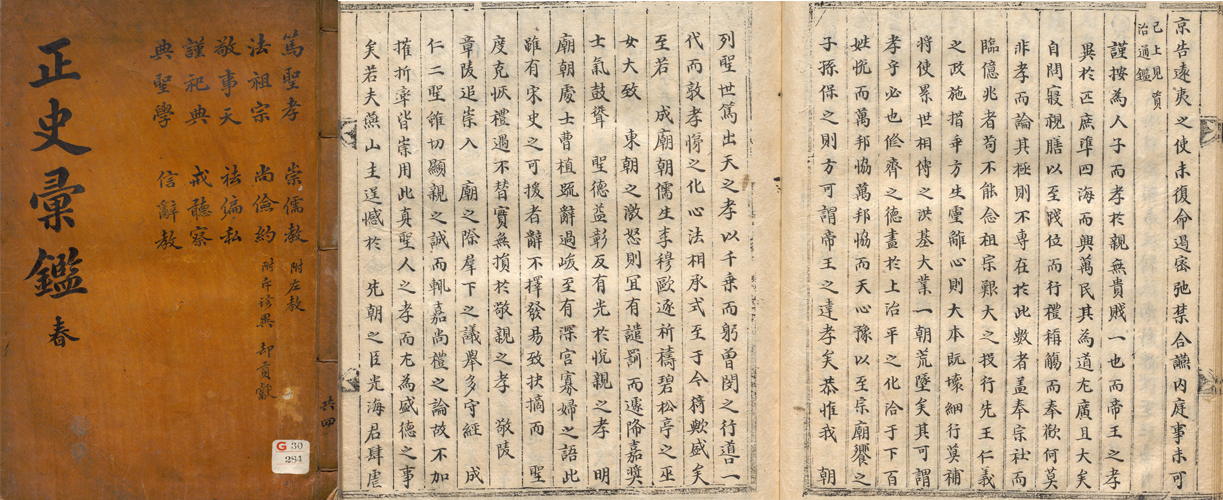 正史彙鑑 春
篤聖孝 崇儒教 附左教
法祖宗 尚儉約 附斥珍異 却貢獻
敬事天 祛偏私
謹祀典 戒聽察
典聖學 信辭教
共四
G 30
284
京告遠夷之使未復命遏密弛禁合讌内庭事未可
已上見資
治通鑑
謹按為人子而孝於親無貴賤一也而帝王之孝
異於匹庶準四海而興萬民其為道尤廣且大矣
自問寢視膳以至踐位而行禮稱觴而奉歡何莫
非孝而論其極則不專在於此數者盖奉宗社而
臨億兆者苟不能念祖宗艱大之投行先王仁義
之政施措乖方生靈離心則大本既壞細行莫補
將使累世相傳之洪基大業一朝荒墜矣其可謂
孝乎必也脩齊之德盡於上治平之化洽于下百
姓悦而萬邦協萬邦協而天心豫以至宗廟饗之
子孫保之則方可謂帝王之達孝矣恭惟我 朝
列聖世篤出天之孝以千乘而躬曾閔之行道一
代而敦孝悌之化心法相承式至于今猗歟盛矣
至若 成廟朝儒生李穆敺逐祈禱碧松亭之巫
女大致 東朝之激怒則宜有譴罰而遽降嘉獎
士氣鼓聳 聖德益彰反有光於悦親之孝 明
廟朝處士曺植䟽辭過峻至有深宫寡婦之語此
雖有宋史之可援者辭不擇發易致抉摘而 聖
度克恢禮遇不替實無損於敬親之孝 敬陵
章陵追崇入 廟之際羣下之議舉多守經 成
仁二聖雖切顯親之誠而輒嘉尚禮之論故不加
摧折率皆崇用此真聖人之孝而尤為盛德之事
矣若夫燕山主逞憾於 先朝之臣光海君肆虐